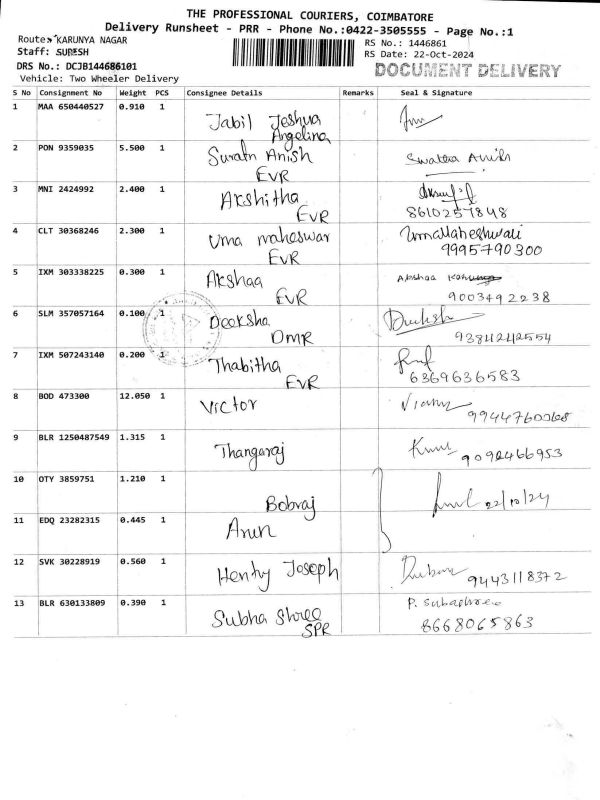 THE PROFESSIONAL COURIERS, COIMBATORE
Delivery Runsheet - PRR - Phone No.:0422-3505555 - Page No.:1
Route: KARUNYA NAGAR
RS No.: 1446861
Staff: SURESH
RS Date: 22-Oct-2024
DRS No.: DCJB144686101
DOCUMENT DELIVERY
Vehicle: Two Wheeler Delivery
S No Consignment No Weight PCS Consignee Details Remarks Seal & Signature
1 MAA 650440527 0.910 1 Jabil Jeshua
Angelina
2 PON 9359035 5.500 1 Anish Anish
EVR
3 MNI 2424992 2.400 1 Akshitha
EVR 8610257848
4 CLT 30368246 2.300 1 Uma maheswar UmaMaheshwari
EVR 9995790300
5 IXM 303338225 0.300 1 Akshaa Akshaa
EVR 9003492238
6 SLM 357057164 0.100 1 Deeksha
DMR 9384242554
7 IXM 507243140 0.200 1 Thabitha
EVR 6369636583
8 BOD 473300 12.050 1 Victor
9 BLR 1250487549 1.315 1 Thangaraj 9092466953
10 OTY 3859751 1.210 1 Bobraj 22/10/24
11 EDQ 23282315 0.445 1 Arun
12 SVK 30228919 0.560 1 Henry Joseph 9443118372
13 BLR 630133809 0.390 1 Subha Shree P. Subashree
SPR 8668065863